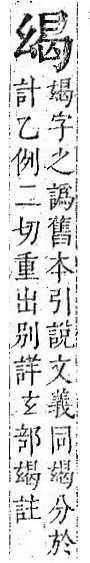 字之譌舊本引說文義同分於
計乙例二切重出別詳玄部註